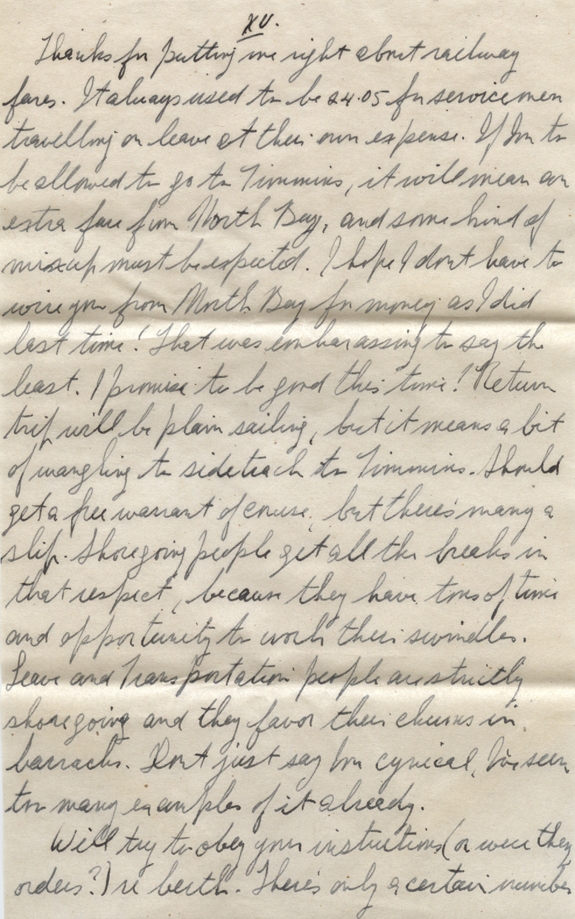 XV.
Thanks for putting me right about railway
fares. It always used to be 24.05 for servicemen
travelling on leave at their own expense. If I'm to
be allowed to go to Timmins, it will mean an
extra fare from North Bay, and some kind of
mixup must be expected. I hope I don't have to
wire you from North Bay for money as I did
last time! That was embarassing to say the
least. I promise to be good this time! Return
trip will be plain sailing, but it means a bit
of wangling to sidetrack to Timmins. Should
get a free warrant of course, but there's many a
slip. Shoregoing people get all the breaks in
that respect, because they have tons of time
and opportunity to work their swindles.
Leave and Transportation people are strictly
shoregoing and they favor their chums in
barracks. Don't just say I'm cynical, I've seen
too many examples of it already.
Will try to obey your instructions (or were they
orders?) re berth. There's only a certain number